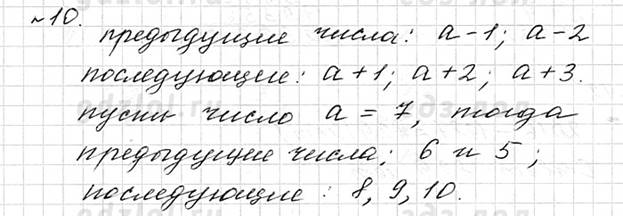 №10.
предыдущие числа: a-1; a-2
последующие: a+1; a+2; a+3.
пусть число a = 7, тогда
предыдущие числа; 6 и 5;
последующие: 8, 9, 10.